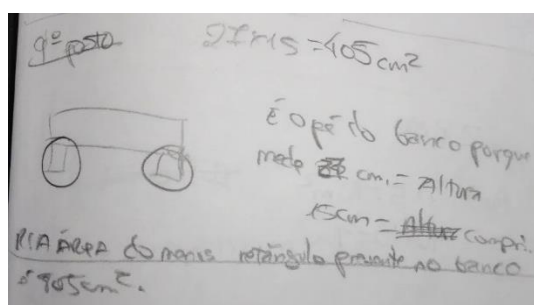 9º posto
27x15=405cm²
É o pé do banco porque
mede 27 cm.= Altura
15cm = compri.
R: A ÁREA do menor retângulo presente no banco
é 405cm².